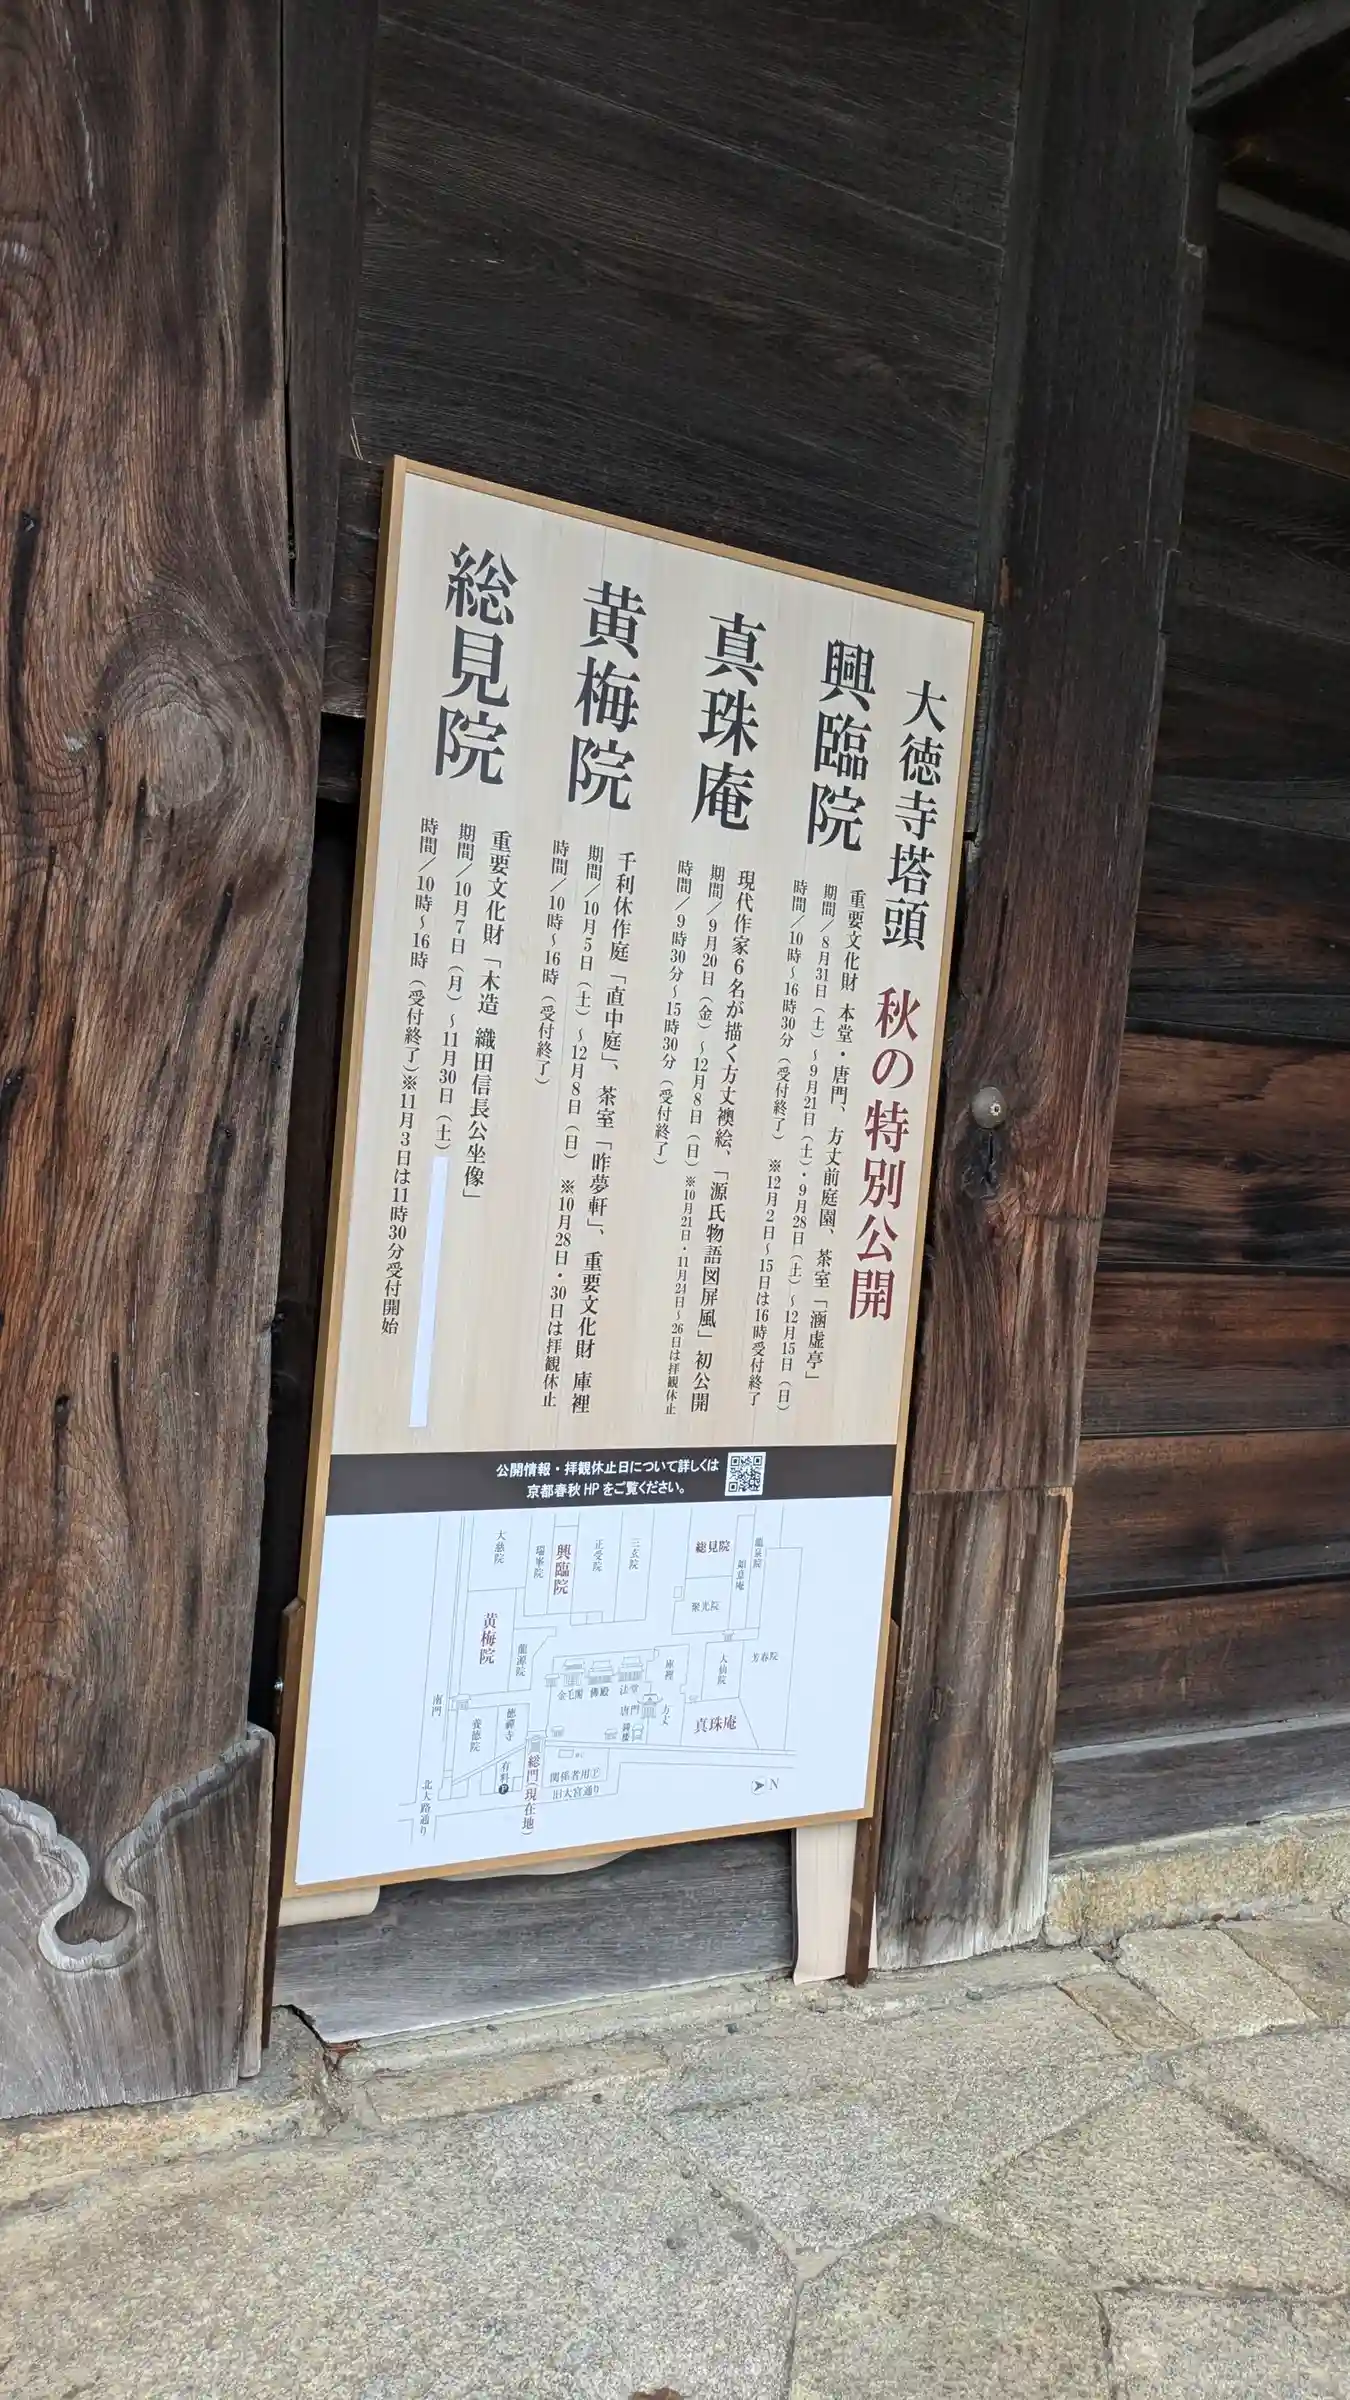 大徳寺塔頭 秋の特別公開
興臨院
重要文化財 本堂・唐門、方丈前庭園、茶室「涵虚亭」
期間/8月31日(土)~9月21日(土)・9月28日(土)~12月15日(日)
時間/10時~16時30分(受付終了) ※12月2日~15日は16時受付終了
真珠庵
現代作家6名が描く方丈襖絵、「源氏物語図屏風」初公開
期間/9月20日(金)~12月8日(日)※10月21日・11月24日~26日は拝観休止
時間/9時30分~15時30分(受付終了)
黄梅院
千利休作庭「直中庭」、茶室「昨夢軒」、重要文化財 庫裡
期間/10月5日(土)~12月8日(日) ※10月28日・30日は拝観休止
時間/10時~16時(受付終了)
総見院
重要文化財「木造 織田信長公坐像」
期間/10月7日(月)~11月30日(土)
時間/10時~16時(受付終了)※11月3日は11時30分受付開始
公開情報・拝観休止日について詳しくは
京都春秋HPをご覧ください。
大慈院
瑞峯院
興臨院
正受院
三玄院
総見院
如意庵
龍泉院
聚光院
黄梅院
龍源院
金毛閣
佛殿
法堂
庫裡
唐門
方丈
鐘楼
大仙院
芳春院
真珠庵
南門
養徳院
徳禅寺
有料P
総門(現在地)
関係者用P
旧大宮通り
北大路通り
N